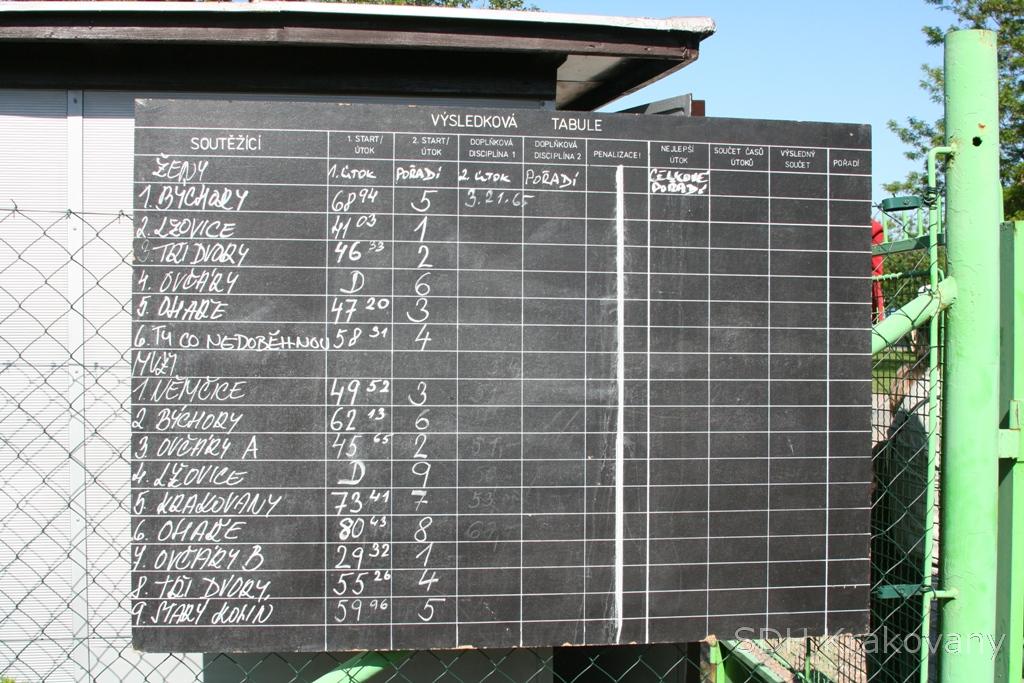 VÝSLEDKOVÁ TABULE
SOUTĚŽÍCÍ 1. START/ÚTOK 2. START/ÚTOK DOPLŇKOVÁ DISCIPLÍNA 1 DOPLŇKOVÁ DISCIPLÍNA 2 PENALIZACE! NEJLEPŠÍ ÚTOK SOUČET ČASŮ ÚTOKŮ VÝSLEDNÝ SOUČET POŘADÍ
ŽENY 1. ÚTOK POŘADÍ 2. ÚTOK POŘADÍ CELKOVÉ POŘADÍ
1. BÝCHORY 68 94 5 3.21.65
2. LŽOVICE 41 03 1
3. TŘI DVORY 46 33 2
4. OVČÁRY D 6
5. OHAŘE 47 20 3
6. TY CO NEDOBĚHNOU 58 31 4
MUŽI
1. NĚMČICE 49 52 3
2 BÝCHORY 62 13 6
3. OVČÁRY A 45 65 2
4. LŽOVICE D 9
5 KRAKOVANY 73 41 7
6. OHAŘE 80 43 8
7. OVČÁRY B 29 32 1
8. TŘI DVORY 55 26 4
9. STARÝ KOLÍN 59 96 5
SDH Krakovany